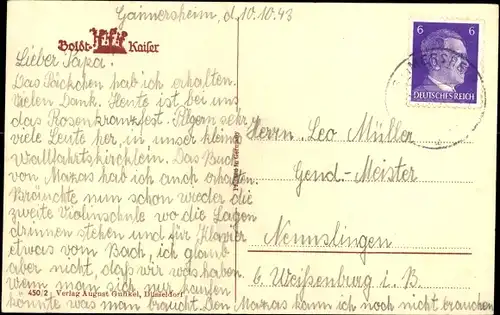 Gaimersheim, d. 10.10.43
Boldt- Kaiser
6 6
DEUTSCHES REICH
Lieber Papa!
Das Päckchen hab ich erhalten.
Vielen Dank. Heute ist bei uns
das Rosenkranzfest. Pilgern sehr
viele Leute her, in unser klein
Wallfahrtskirchlein. Das Buch
von Mazas hab ich auch erhalten.
Bräuchte nun schon wieder die
zweite Violinschule wo die Lagen
drinnen stehen und für Klavier
etwas vom Bach, ich glaub
aber nicht, daß wir was haben.
Wenn man sich nur kaufen
könnte was man braucht. Den Mazas kann ich noch nicht brauchen
Herrn Leo Müller
Gend-Meister
Nennslingen
b. Weißenburg i. B.
Printed in Germany
450/2 Verlag August Gunkel, Düsseldorf